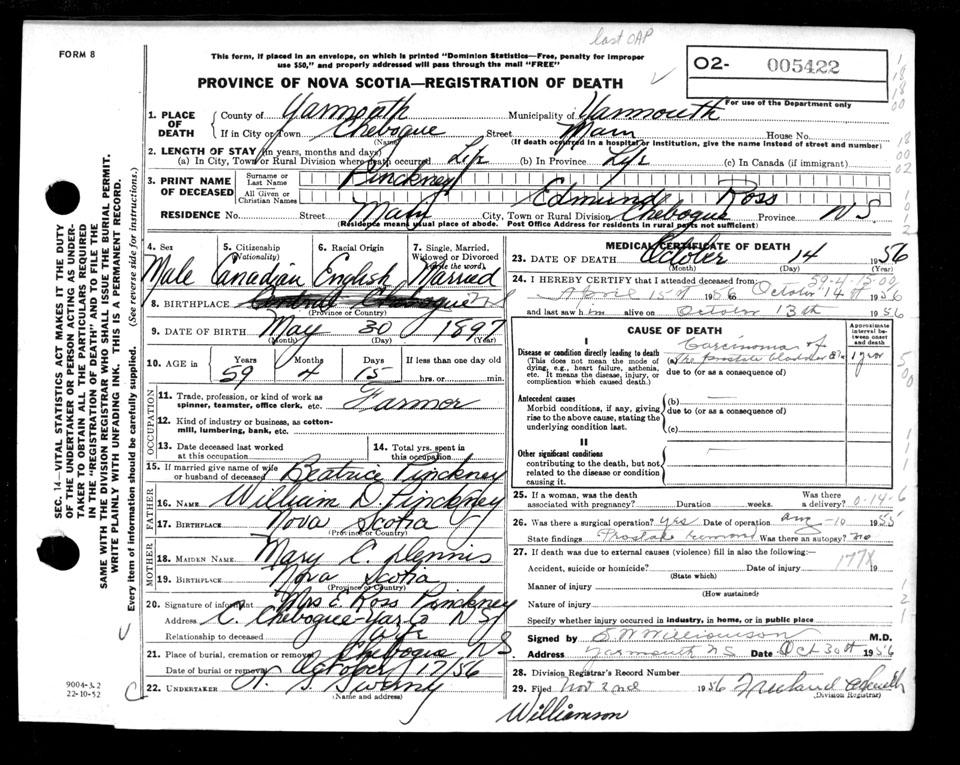 last OAP
FORM 8
This form, if placed in an envelope, on which is printed "Dominion Statistics—Free, penalty for improper
use $50," and properly addressed will pass through the mail "FREE"
PROVINCE OF NOVA SCOTIA—REGISTRATION OF DEATH
O2- 005422
For use of the Department only
1. PLACE OF DEATH County of Yarmouth Municipality of Yarmouth
If in City or Town Chebogue Street Main House No.
(Name) (If death occurred in a hospital or institution, give the name instead of street and number)
2. LENGTH OF STAY (in years, months and days)
(a) In City, Town or Rural Division where death occurred Life (b) In Province Life (c) In Canada (if immigrant)
3. PRINT NAME OF DECEASED Surname or Last Name Pinckney
All Given or Christian Names Edmund Ross
RESIDENCE No. Street Main City, Town or Rural Division Chebogue Province N.S.
(Residence means usual place of abode. Post Office Address for residents in rural parts not sufficient)
4. Sex 5. Citizenship (Nationality) 6. Racial Origin 7. Single, Married, Widowed or Divorced (write the word)
Male Canadian English Married
8. BIRTHPLACE Central Chebogue N.S.
(Province or Country)
9. DATE OF BIRTH May 30 1897
(Month) (Day) (Year)
10. AGE in Years Months Days If less than one day old
59 4 15 hrs. or min.
OCCUPATION
11. Trade, profession, or kind of work as spinner, teamster, office clerk, etc. Farmer
12. Kind of industry or business, as cotton-mill, lumbering, bank, etc.
13. Date deceased last worked at this occupation 14. Total yrs. spent in this occupation
15. If married give name of wife or husband of deceased Beatrice Pinckney
FATHER
16. NAME William D. Pinckney
17. BIRTHPLACE Nova Scotia
(Province or Country)
MOTHER
18. MAIDEN NAME Mary C. Dennis
19. BIRTHPLACE Nova Scotia
(Province or Country)
20. Signature of informant Mrs E. Ross Pinckney
Address C. Chebogue Yar Co N.S.
Relationship to deceased Wife
21. Place of burial, cremation or removal Chebogue N.S.
Date of burial or removal October 17/56
22. UNDERTAKER Sweeny
(Name and address)
MEDICAL CERTIFICATE OF DEATH
23. DATE OF DEATH October 14 1956
(Month) (Day) (Year)
24. I HEREBY CERTIFY that I attended deceased from 59-4-15-00
April 15th 1956 to October 14th 1956
and last saw him alive on October 13th 1956
CAUSE OF DEATH
Approximate interval between onset and death
I
Disease or condition directly leading to death
(This does not mean the mode of dying, e.g., heart failure, asthenia, etc. It means the disease, injury, or complication which caused death.)
(a) Carcinoma of the prostate bladder 1 year
due to (or as a consequence of)
Antecedent causes
Morbid conditions, if any, giving rise to the above cause, stating the underlying condition last.
(b) —
due to (or as a consequence of)
(c)
II
Other significant conditions
contributing to the death, but not related to the disease or condition causing it.
25. If a woman, was the death associated with pregnancy? Duration weeks. Was there a delivery? 0-14-6
26. Was there a surgical operation? yes Date of operation Aug-10 1955
State findings Prostate removed Was there an autopsy? no
27. If death was due to external causes (violence) fill in also the following:—
Accident, suicide or homicide? Date of injury 19
177X
(State which)
Manner of injury
(How sustained)
Nature of injury
Specify whether injury occurred in industry, in home, or in public place
Signed by S.W. Williamson M.D.
Address Yarmouth N.S. Date Oct 30th 1956
28. Division Registrar's Record Number
29. Filed Nov 2nd 1956
(Division Registrar)
Williamson
9004-3.2
22-10-52
SEC. 14—VITAL STATISTICS ACT MAKES IT THE DUTY
OF THE UNDERTAKER OR PERSON ACTING AS UNDER-
TAKER TO OBTAIN ALL THE PARTICULARS REQUIRED
IN THE "REGISTRATION OF DEATH" AND TO FILE THE
SAME WITH THE DIVISION REGISTRAR WHO SHALL ISSUE THE BURIAL PERMIT.
WRITE PLAINLY WITH UNFADING INK. THIS IS A PERMANENT RECORD.
Every item of information should be carefully supplied. (See reverse side for instructions.)